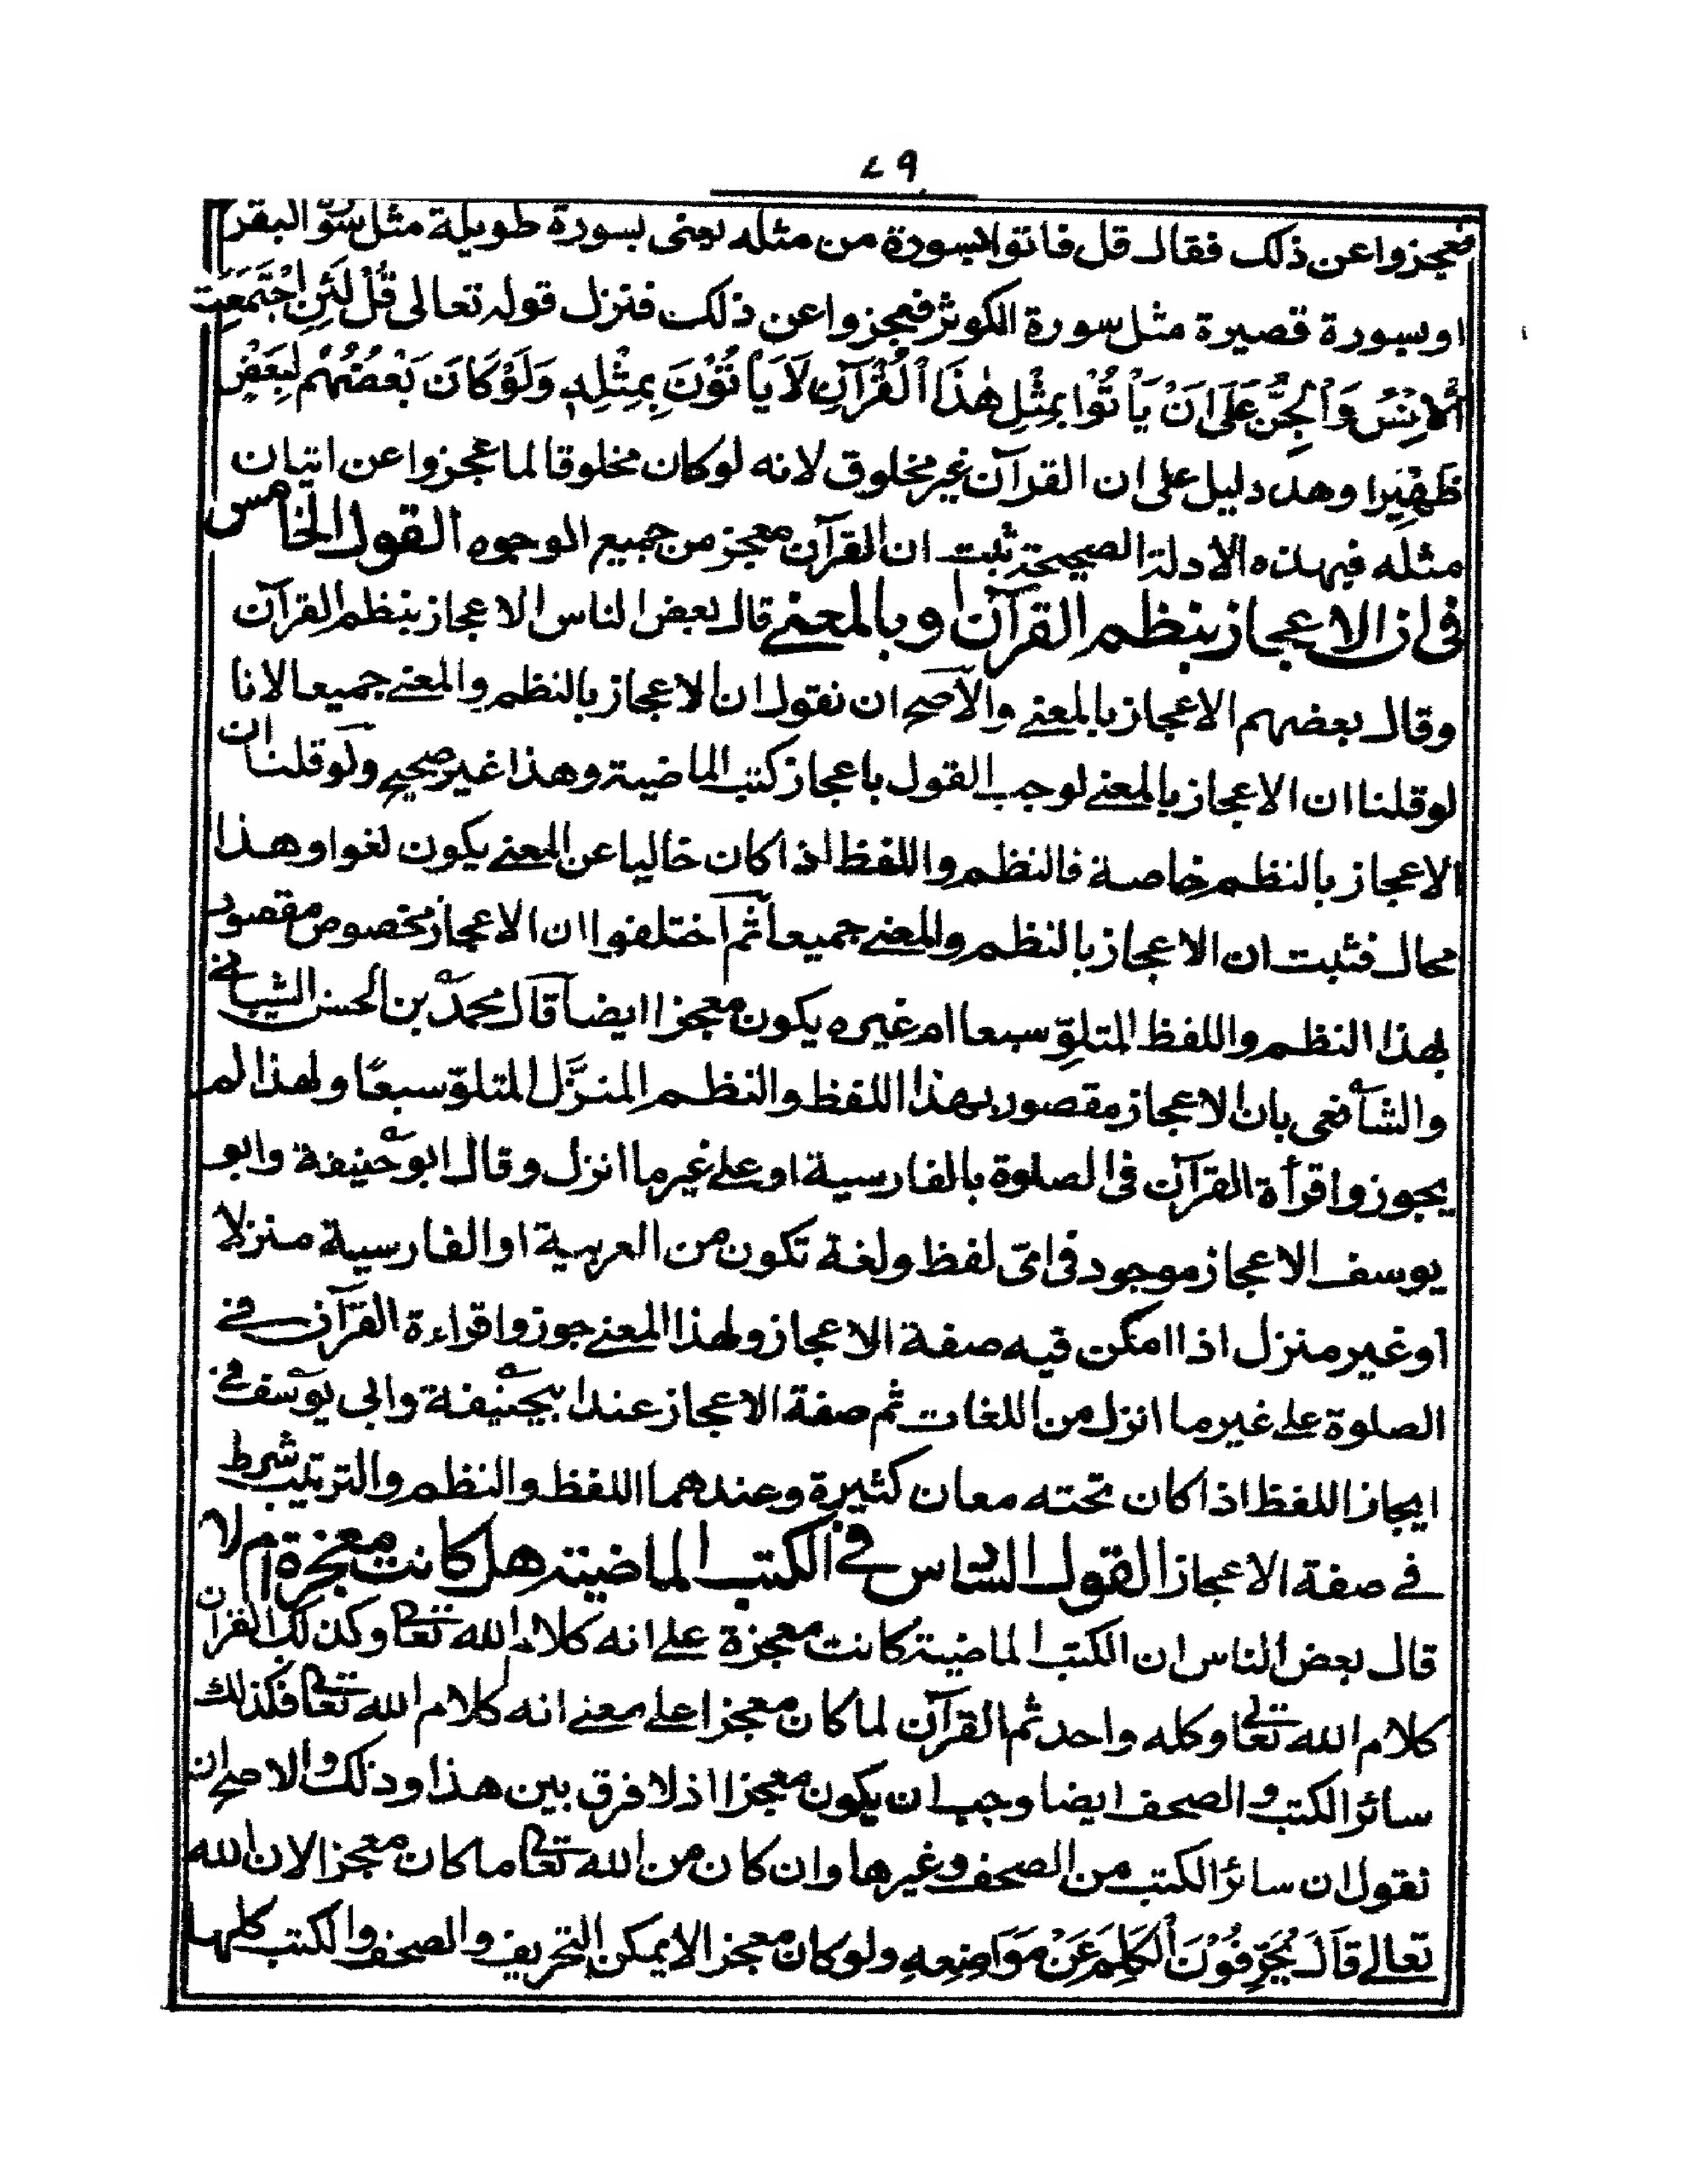 ٧٩
فعجزوا عن ذلك فقال قل فاتوا بسورة من مثله يعنى بسورة طويلة مثل سوّ البقر
او بسورة قصيرة مثل سورة الكوثر فعجزوا عن ذلك فنزل قوله تعالى قُلْ لَئِنِ اجْتَمَعَتِ
الْاِنْسُ وَالْجِنُّ عَلَى اَنْ يَأْتُوْا بِمِثْلِ هٰذَا الْقُرْآنِ لَا يَأْتُوْنَ بِمِثْلِهٖ وَلَوْ كَانَ بَعْضُهُمْ لِبَعْضٍ
ظَهِيْرًا وهذ دليل على ان القرآن غير مخلوق لانه لو كان مخلوقا لما عجزوا عن اتيان
مثله فبهذه الادلة الصحيحة ثبت ان القرآن معجز من جميع الوجوه القول الخامس
فى ان الاعجاز بنظم القرآن او بالمعنى قال بعض الناس الاعجاز بنظم القرآن
وقال بعضهم الاعجاز بالمعنى والاصح ان نقول ان الاعجاز بالنظم والمعنى جميعا لانا
لو قلنا ان الاعجاز بالمعنى لوجب القول باعجاز كتب الماضية وهذا غير صحيح ولو قلنا ان
الاعجاز بالنظم خاصة فالنظم واللفظ اذا كان خاليا عن المعنى يكون لغوا وهذا
محال فثبت ان الاعجاز بالنظم والمعنى جميعا ثم اختلفوا ان الاعجاز مخصوص مقصود
بهذا النظم واللفظ المتلوّ سبعا ام غيره يكون معجزا ايضا قال محمد بن الحسن الشيبانى
والشافعى بان الاعجاز مقصود بهذا اللفظ والنظم المنزَّل المتلوّ سبعًا ولهذا لم
يجوزوا قرأة القرآن فى الصلوة بالفارسية او على غير ما انزل وقال ابو حنيفة وابو
يوسف الاعجاز موجود فى اىّ لفظ ولغة تكون من العربية او الفارسية منزلا
او غير منزل اذا امكن فيه صفة الاعجاز ولهذا المعنى جوزوا قراءة القرآن فى
الصلوة على غير ما انزل من اللغات ثم صفة الاعجاز عند ابيحنيفة وابى يوسف فى
ايجاز اللفظ اذا كان تحته معان كثيرة وعندهما اللفظ والنظم والترتيب شرط
فى صفة الاعجاز القول السادس فى الكتب الماضية هل كانت معجزة ام لا
قال بعض الناس ان الكتب الماضية كانت معجزة على انه كلام الله تعالى وكذلك القرآن
كلام الله تعالى وكله واحد ثم القرآن لما كان معجزا على معنى انه كلام الله تعالى فكذلك
سائر الكتب والصحف ايضا وجب ان يكون معجزا اذ لا فرق بين هذا وذلك والاصح ان
نقول ان سائر الكتب من الصحف وغيرها وان كان من الله تعالى ما كان معجزا لان الله
تعالى قَالَ يُحَرِّفُوْنَ الْكَلِمَ عَنْ مَوَاضِعِهِ ولو كان معجزا لا يمكن التحريف والصحف والكتب كلها